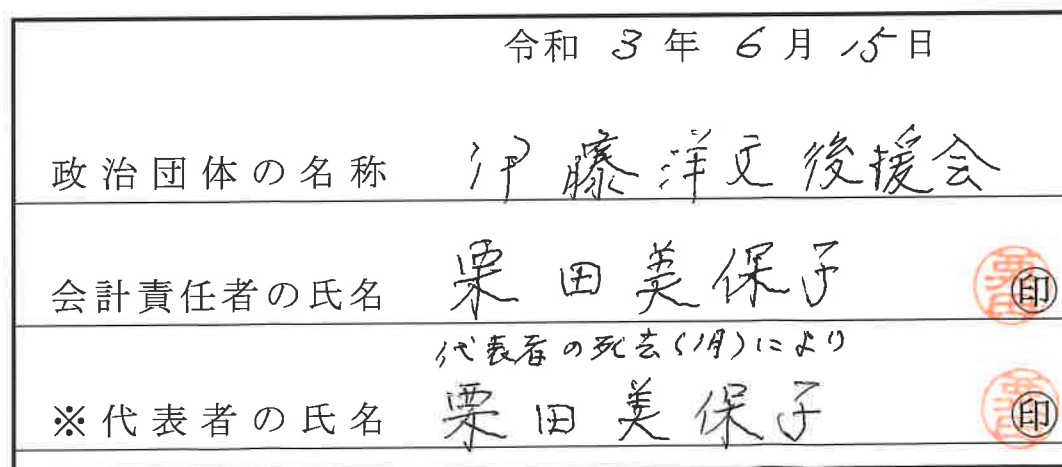 令和 3 年 6 月 15 日
政治団体の名称 伊藤洋文後援会
会計責任者の氏名 栗田美保子 印
代表者の死去(1月)により
※代表者の氏名 栗田美保子 印